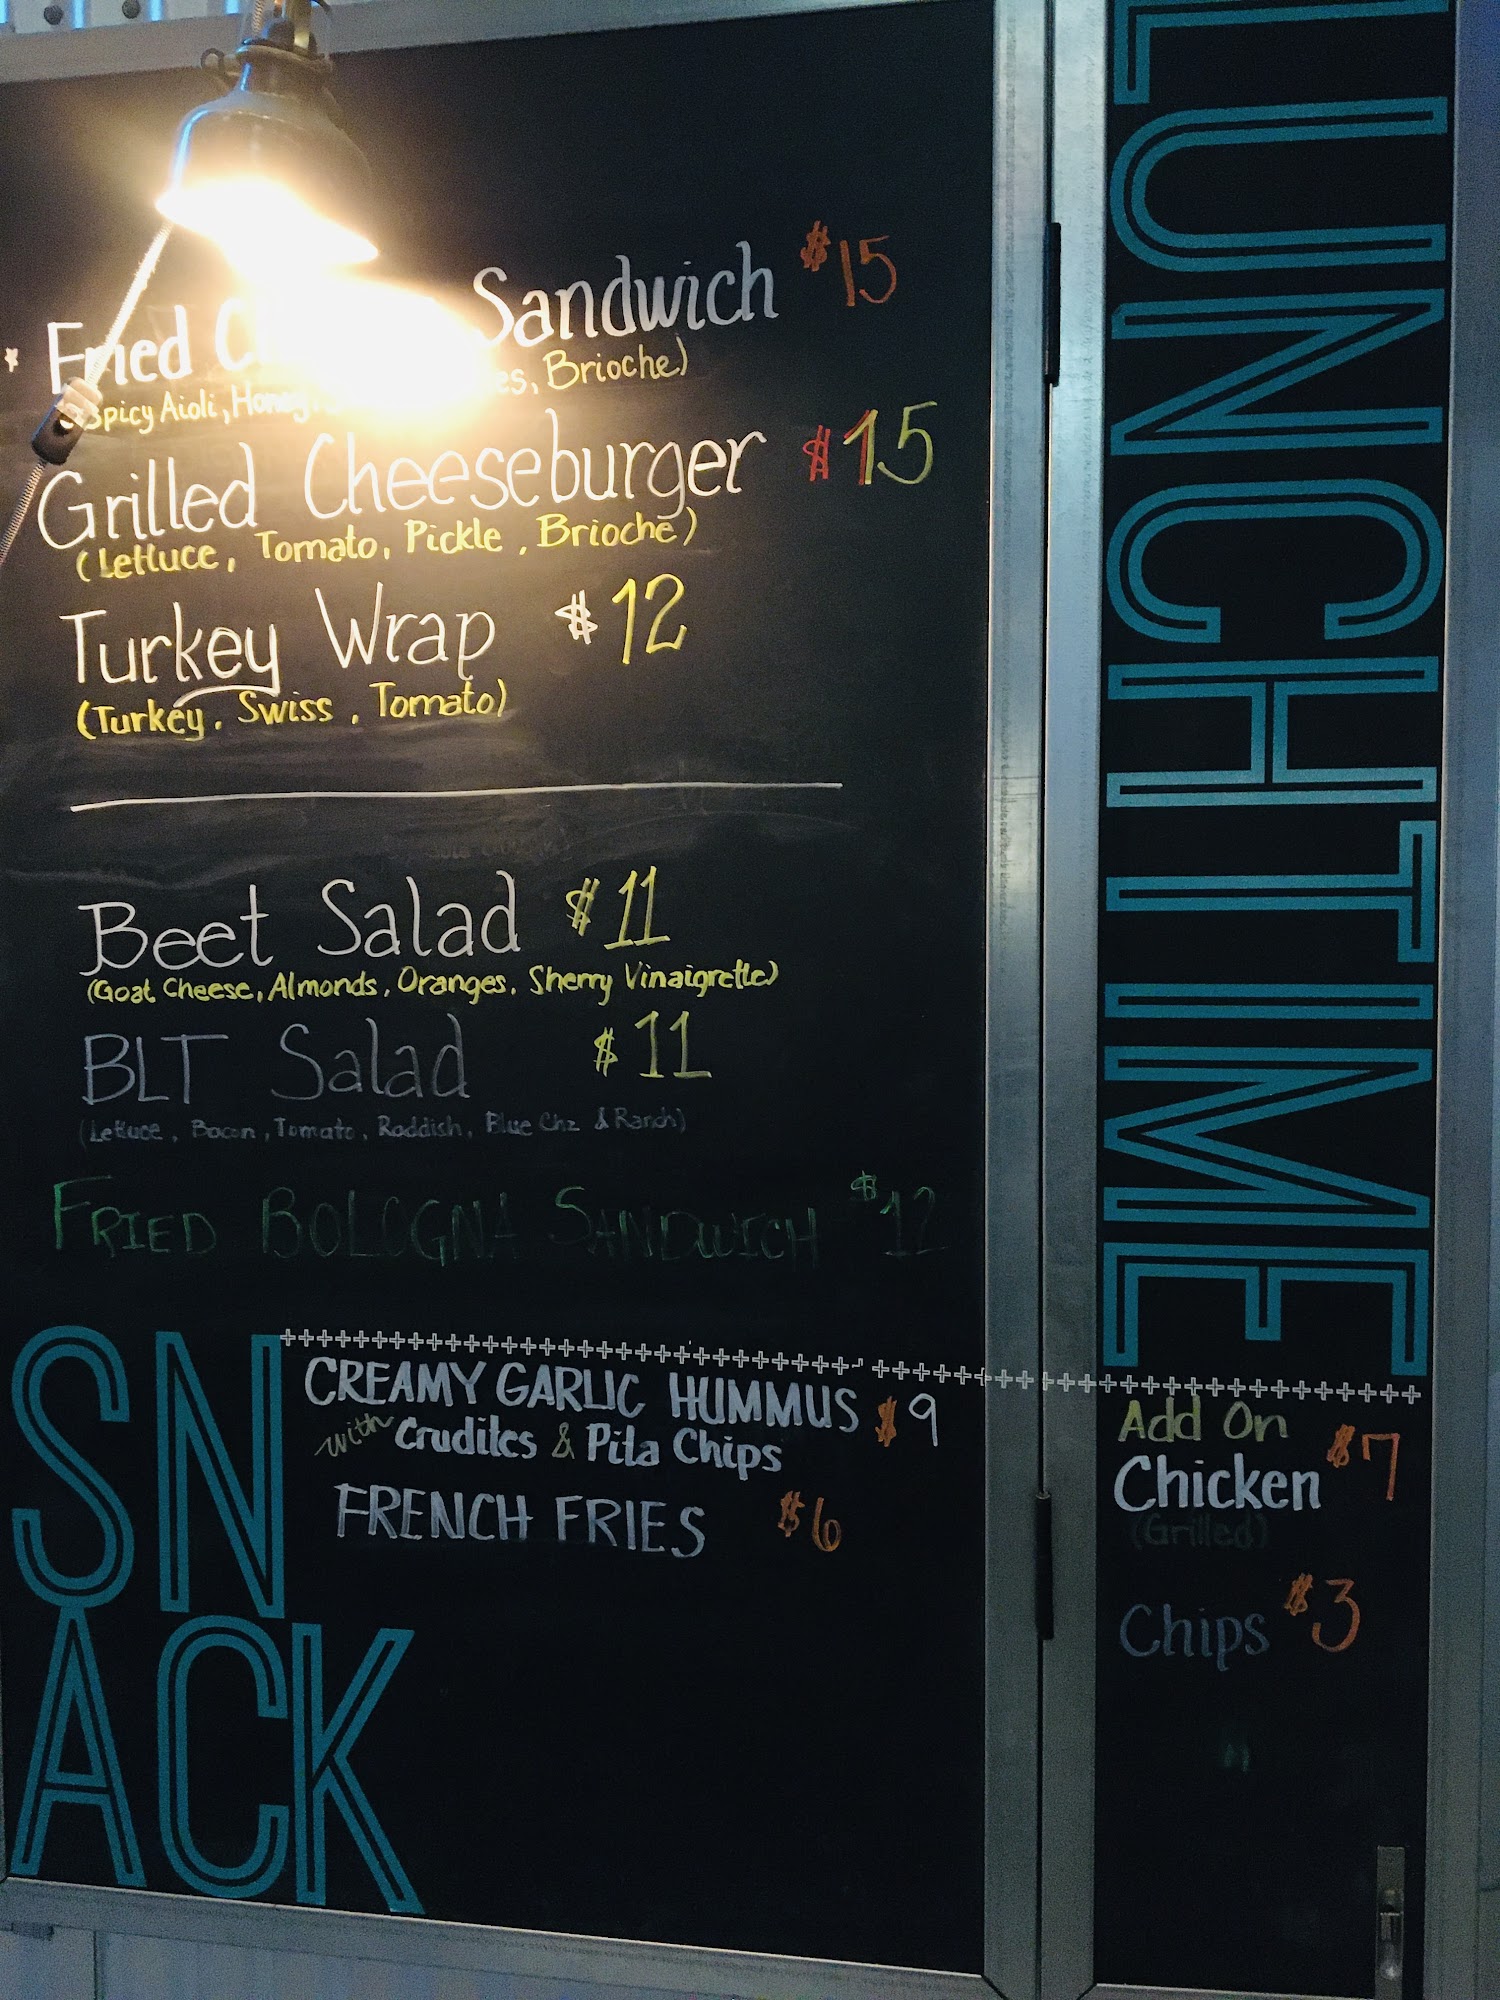 * Fried Sandwich $15
Spicy Aioli, Honey Brioche)
Grilled Cheeseburger $15
(Lettuce, Tomato, Pickle, Brioche)
Turkey Wrap $12
(Turkey, Swiss, Tomato)
Beet Salad $11
(Goat Cheese, Almonds, Oranges, Sherry Vinaigrette)
BLT Salad $11
(Lettuce, Bacon, Tomato, Raddish, Blue Chz & Ranch)
FRIED BOLOGNA SANDWICH $12
SN
ACK
CREAMY GARLIC HUMMUS $9
with Crudites & Pita Chips
FRENCH FRIES $6
LUNCHTIME
Add On
Chicken $7
(Grilled)
Chips $3